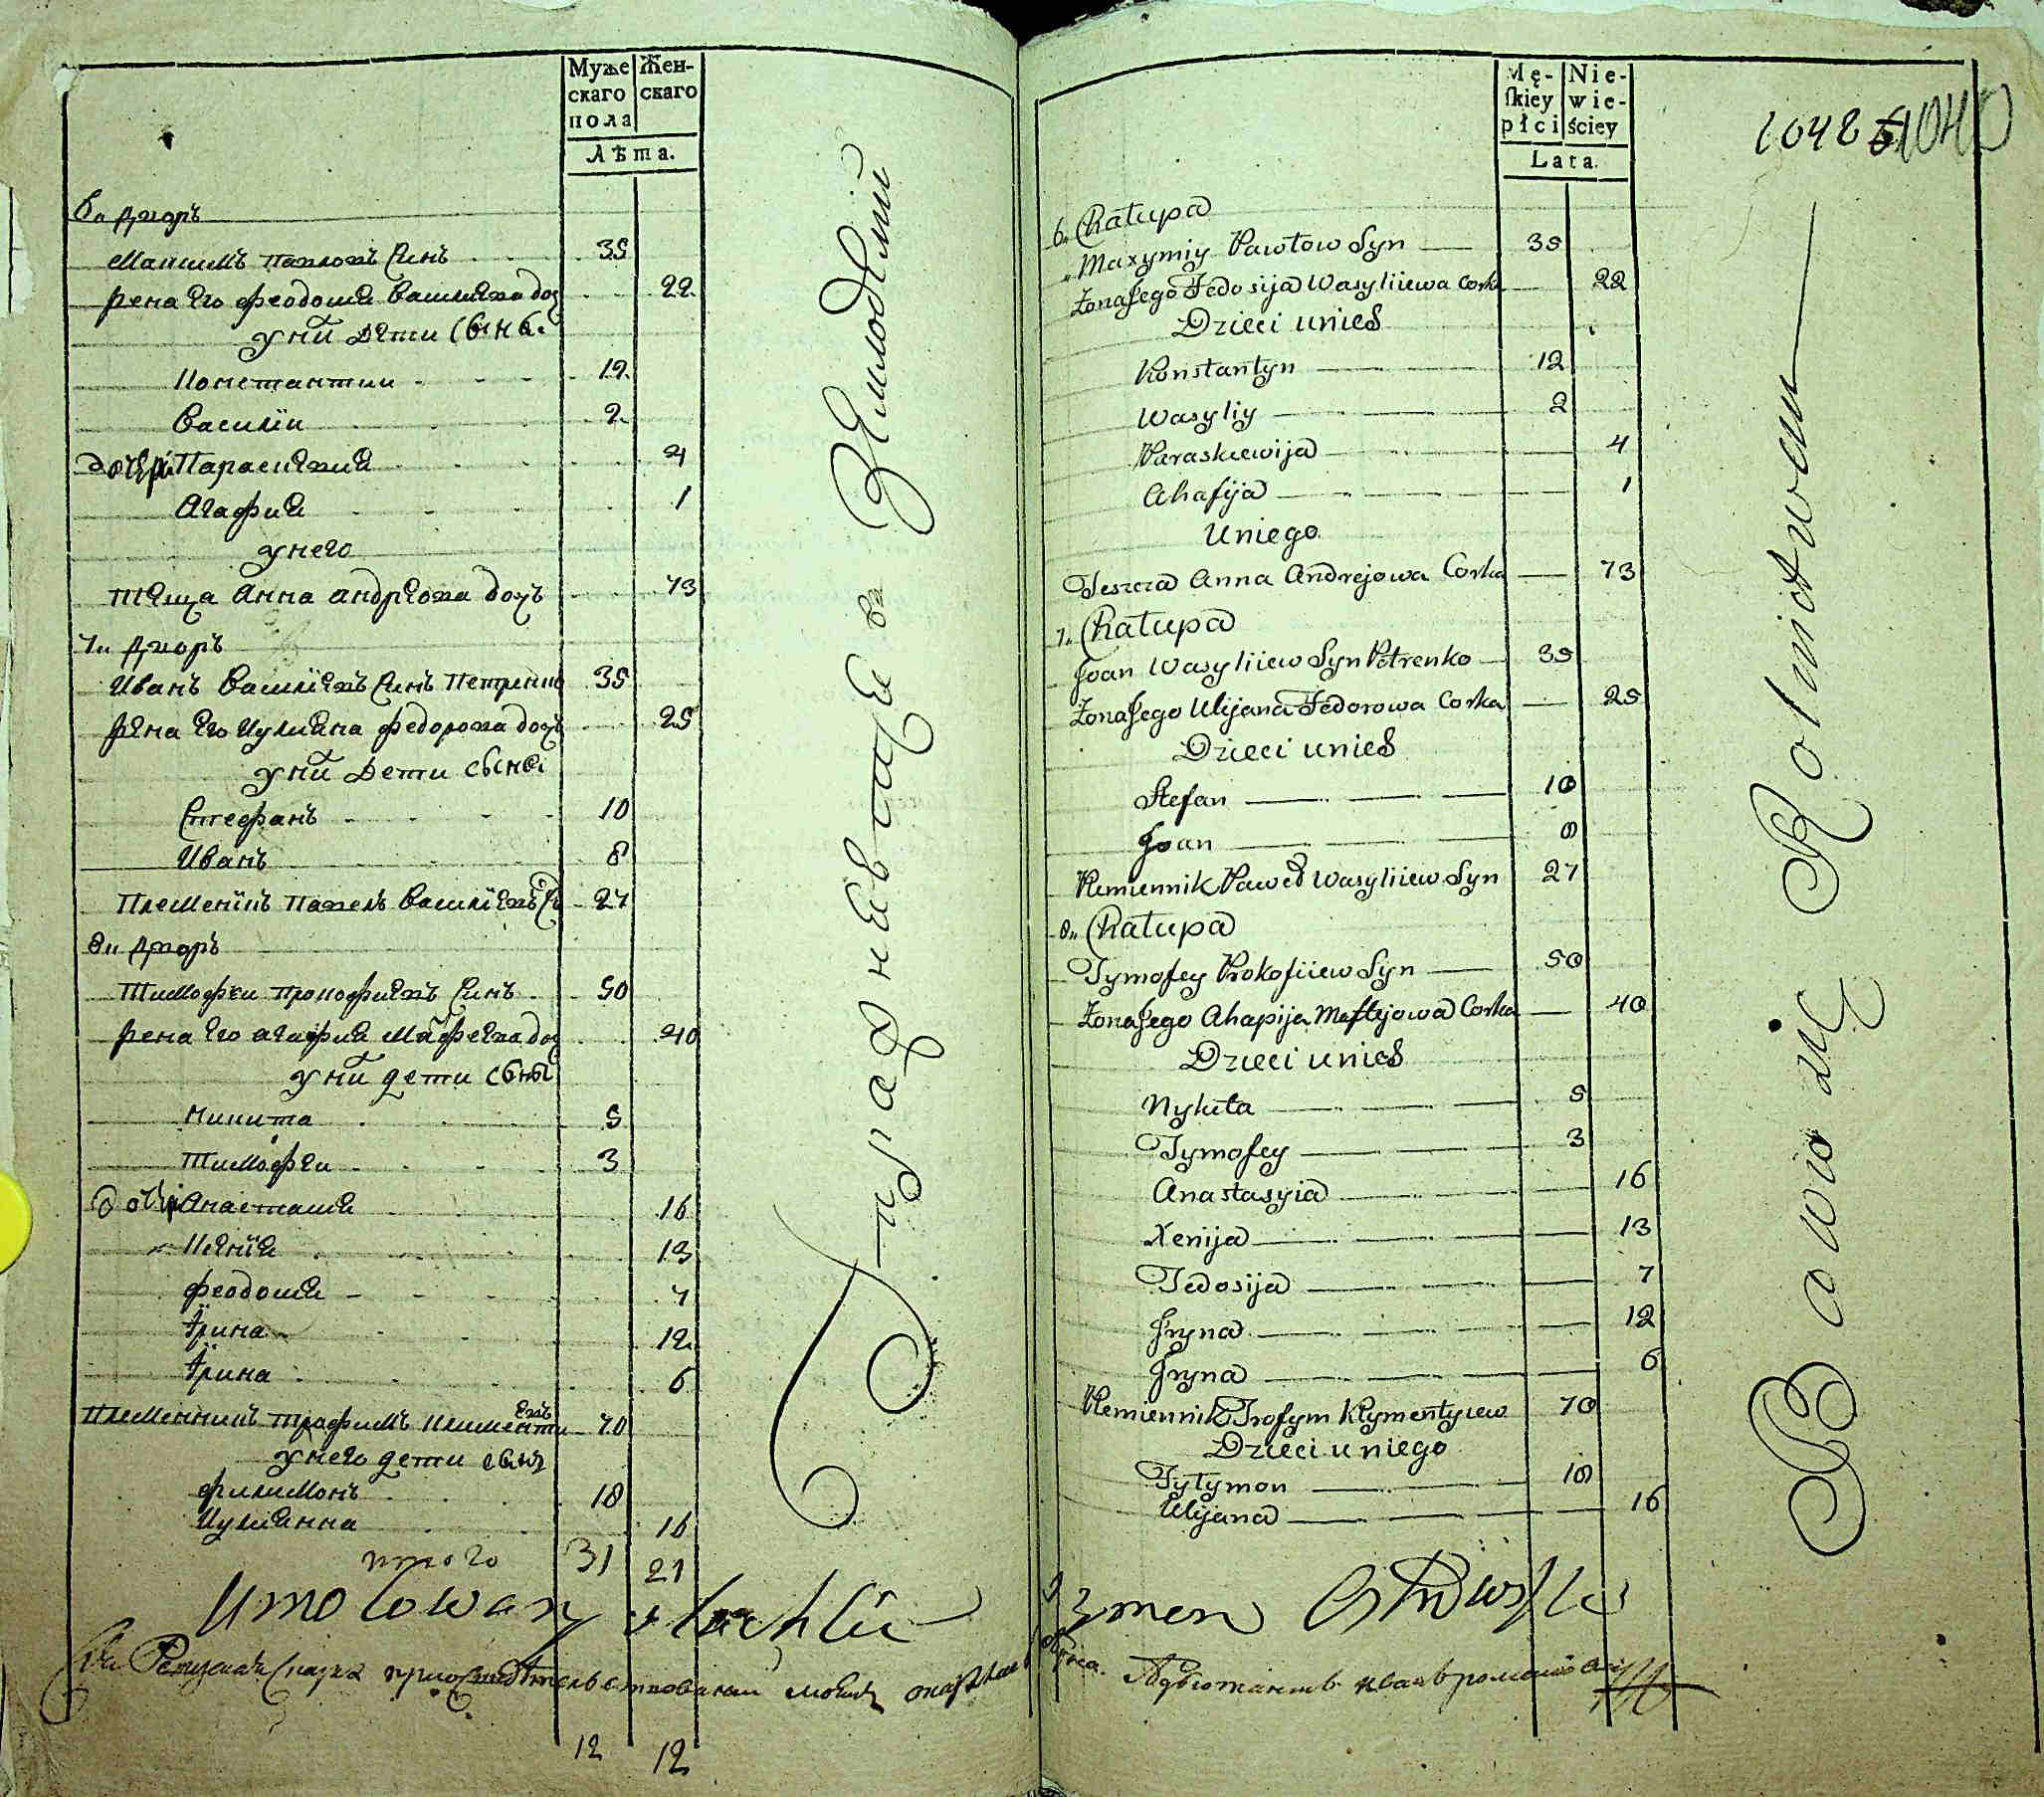 Муже Жен-
скаго скаго
пола
Лѣта.
6и дворъ
Максимъ павловъ Синъ 35
жена его феодосия василиева доч 22
у них дети сына
Константин 12
Василіи 2
дочери Параскевия 4
Агафия 1
у него
теща Анна андреева дочъ 73
7и дворъ
Иванъ Василіевъ Синъ Петренко 35
жена его Иулияна федорова дочъ 25
у них дети сыны
Стефанъ 10
Иванъ 8
Племеникъ павелъ василіевъ 27
8и дворъ
Тимофеи прокофиевъ Синъ 50
жена его агафия Матфеева доч 40
у них дети сыны
Никита 5
Тимофеи 3
дочери Анастасия 16
Ксенїя 13
феодосия 7
Їрина 12
Їрина 6
Племенникъ трофимъ климентиевъ 70
у него дети сын
филимонъ 18
Иулиянна 16
итого 31 21
12 12
упражнѣвтаѣ ва Земледелии
Mę- Nie-
ſkiey wie-
płci ściey
Lata.
1048
6. Chałupa
Maxymiy Pawłow Syn 35
Zona Jego Fedosija Wasyliiewa Corka 22
Dzieci unich
Konstantyn 12
Wasyliy 2
Paraskiewija 4
Ahafija 1
Uniego
Teszcza Anna Andrejowa Corka 73
7. Chałupa
Joan Wasyliiew Syn Petrenko 35
Zona Jego Ulijana Fedorowa Corka 25
Dzieci unich
Stefan 10
Joan 8
Plemiennik Paweł Wasyliiew Syn 27
8. Chałupa
Tymofey Prokofiiew Syn 50
Zona Jego Ahapija Meftejowa Corka 40
Dzieci unich
Nykita 5
Tymofey 3
Anastasyia 16
Xenija 13
Fedosija 7
Jryna 12
Jryna 6
Plemiennik Trofym Klymentyiew 70
Dzieci uniego
Fylymon 18
Ulijana 16
Bawią się Rolnictwem